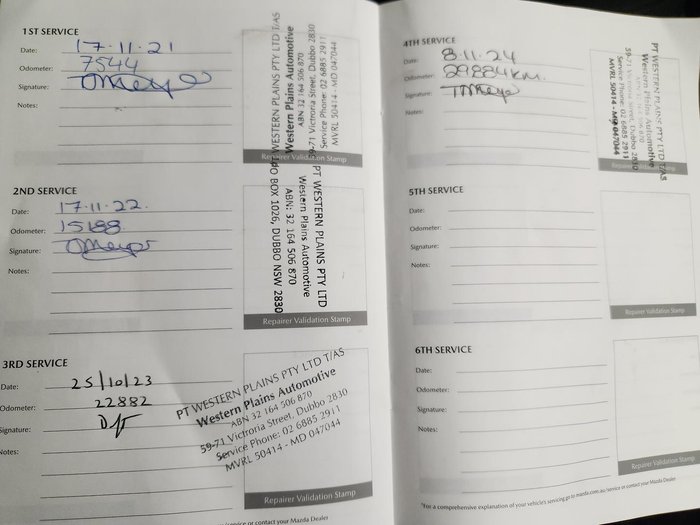 1ST SERVICE
Date: 17.11.21
Odometer: 7544
Signature:
Notes:
PT WESTERN PLAINS PTY LTD T/AS
Western Plains Automotive
ABN 32 164 506 870
59-71 Victroria Street, Dubbo 2830
Service Phone: 02 6885 2911
MVRL 50414 - MD 047044
Repairer Validation Stamp
2ND SERVICE
Date: 17.11.22.
Odometer: 15188
Signature:
Notes:
PT WESTERN PLAINS PTY LTD
Western Plains Automotive
ABN: 32 164 506 870
PO BOX 1026, DUBBO NSW 2830
Repairer Validation Stamp
3RD SERVICE
Date: 25/10/23
Odometer: 22882
Signature:
Notes:
PT WESTERN PLAINS PTY LTD T/AS
Western Plains Automotive
ABN 32 164 506 870
59-71 Victroria Street, Dubbo 2830
Service Phone: 02 6885 2911
MVRL 50414 - MD 047044
Repairer Validation Stamp
service or contact your Mazda Dealer
4TH SERVICE
Date: 8.11.24
Odometer: 29884KM.
Signature:
Notes:
PT WESTERN PLAINS PTY LTD T/AS
Western Plains Automotive
ABN 32 164 506 870
59-71 Victroria Street, Dubbo 2830
Service Phone: 02 6885 2911
MVRL 50414 - MD 047044
Repairer Validation Stamp
5TH SERVICE
Date:
Odometer:
Signature:
Notes:
Repairer Validation Stamp
6TH SERVICE
Date:
Odometer:
Signature:
Notes:
Repairer Validation Stamp
*For a comprehensive explanation of your vehicle's servicing go to mazda.com.au/service or contact your Mazda Dealer